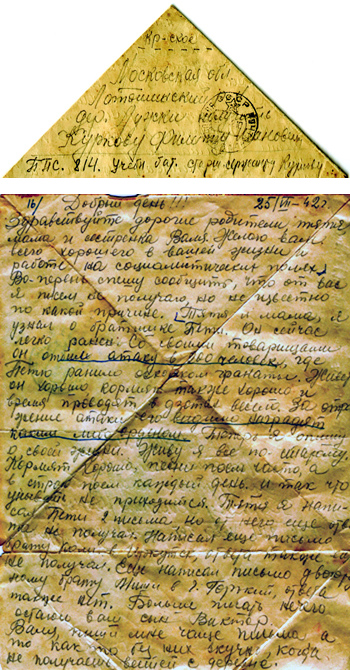 Кр-ское
Московская обл.
Лотошинский
дер. Лужки
Куркову Филиппу Ивановичу
ППС. 814. Учебн. бат. старш. сержанту Куркову
16/ Добрый день!!! 25/VII-42 г.
Здравствуйте дорогие родители, тятя
мама и сестренка Валя. Желаю вам
всего хорошего в вашей жизни и
работе на социалистических полях.
Во-первых спешу сообщить, что от вас
я писем не получаю, но не известно
по какой причине. Тятя и мама, я
узнал о братишке Пети. Он сейчас
легко ранен. Со своими товарищами
он отбил атаку в 300 человек, где
Петю ранило осколком гранаты. Живет
он хорошо кормят также хорошо и
время проводят весело. За отра-
жение атаки его
Теперь я опишу
о своей жизни. Живу я все по-старому.
Кормят хорошо, песни поем часто, а
поем каждый день. и так что
унывать не приходится. Тятя я напи-
сал Пети 2 письма, но от него еще отве-
та не получал. Написал еще письмо
брату
не получал. Еще написал письмо двоюрод-
ному брату Мише в г. Горький, ответа
также нет. Больше писать нечего
остаюсь ваш сын Виктор.
Валя, пиши мне чаще письма, а
то как-то без них скучно, когда
не получаешь вестей с деревне.